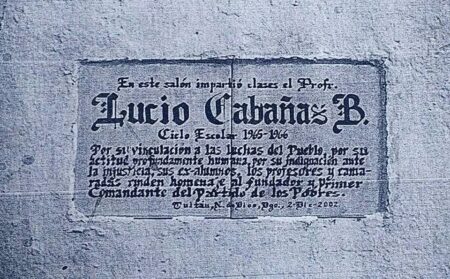 En este salón impartió clases el Profr.
Lucio Cabañas B.
Ciclo Escolar 1965-1966
Por su vinculación a las luchas del Pueblo, por su
actitud profundamente humana, por su indignación ante
la injusticia, sus ex-alumnos, los profesores y cama-
radas rinden homenaje al fundador y primer
Comandante del Partido de los Pobres.
Tultán, N. de Dios, Dgo., 2-Dic-2002.